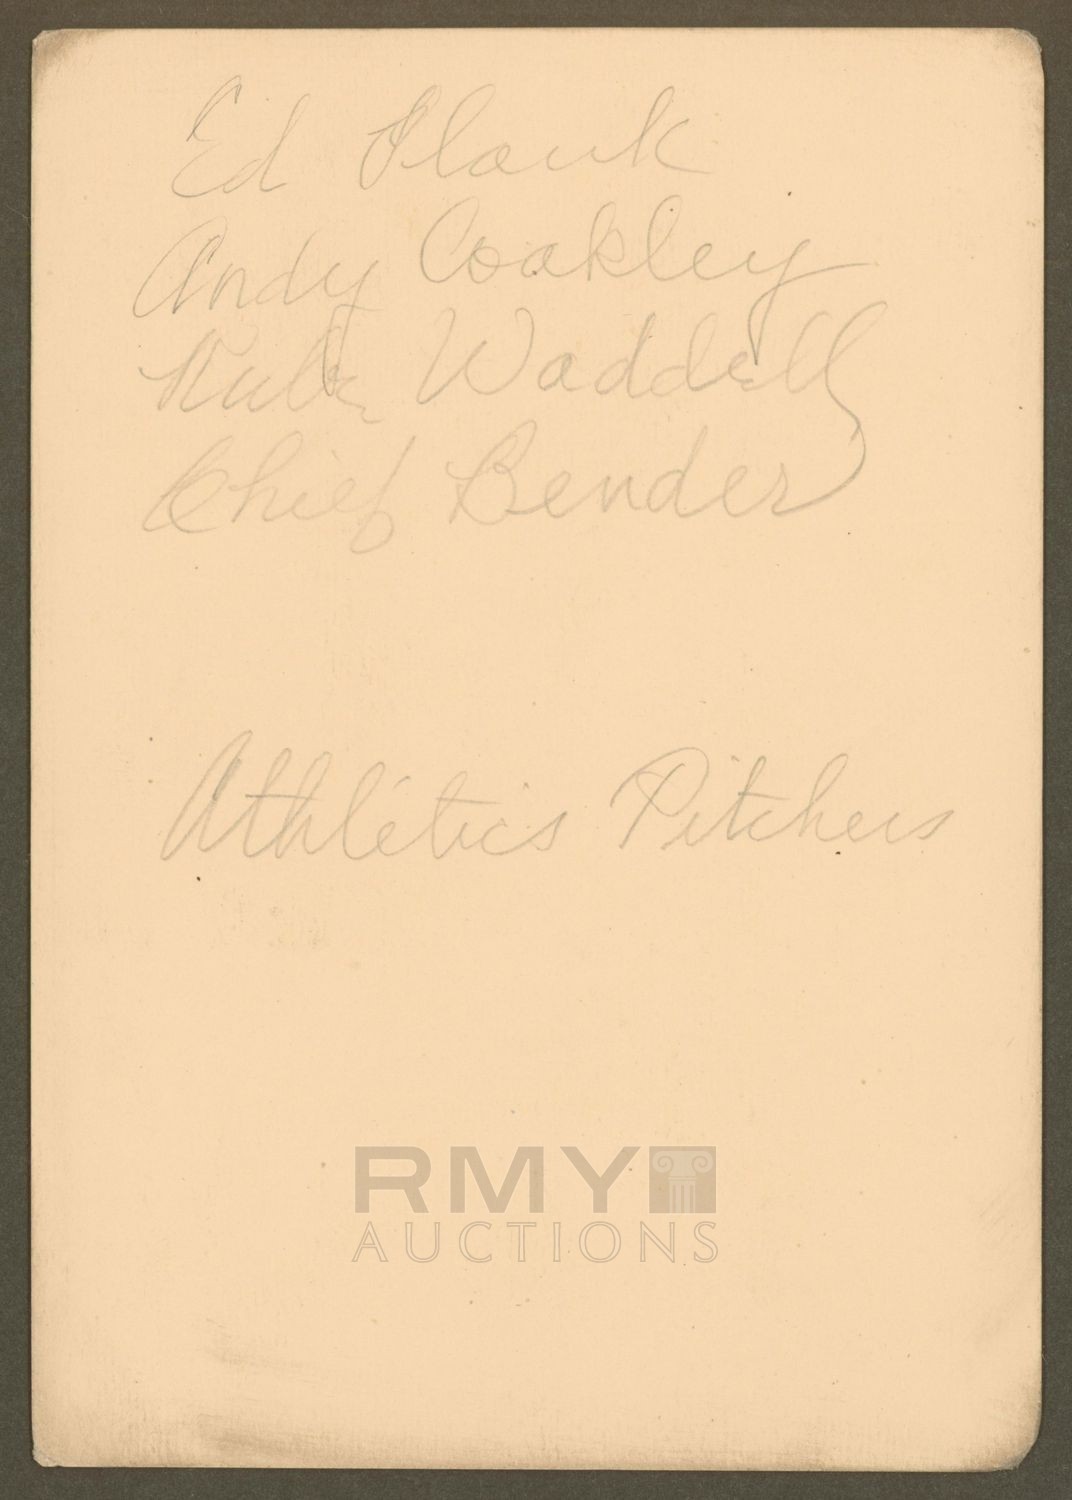 Ed Plank
Andy Coakley
Rube Waddell
Chief Bender
Athletics Pitchers
RMY
AUCTIONS